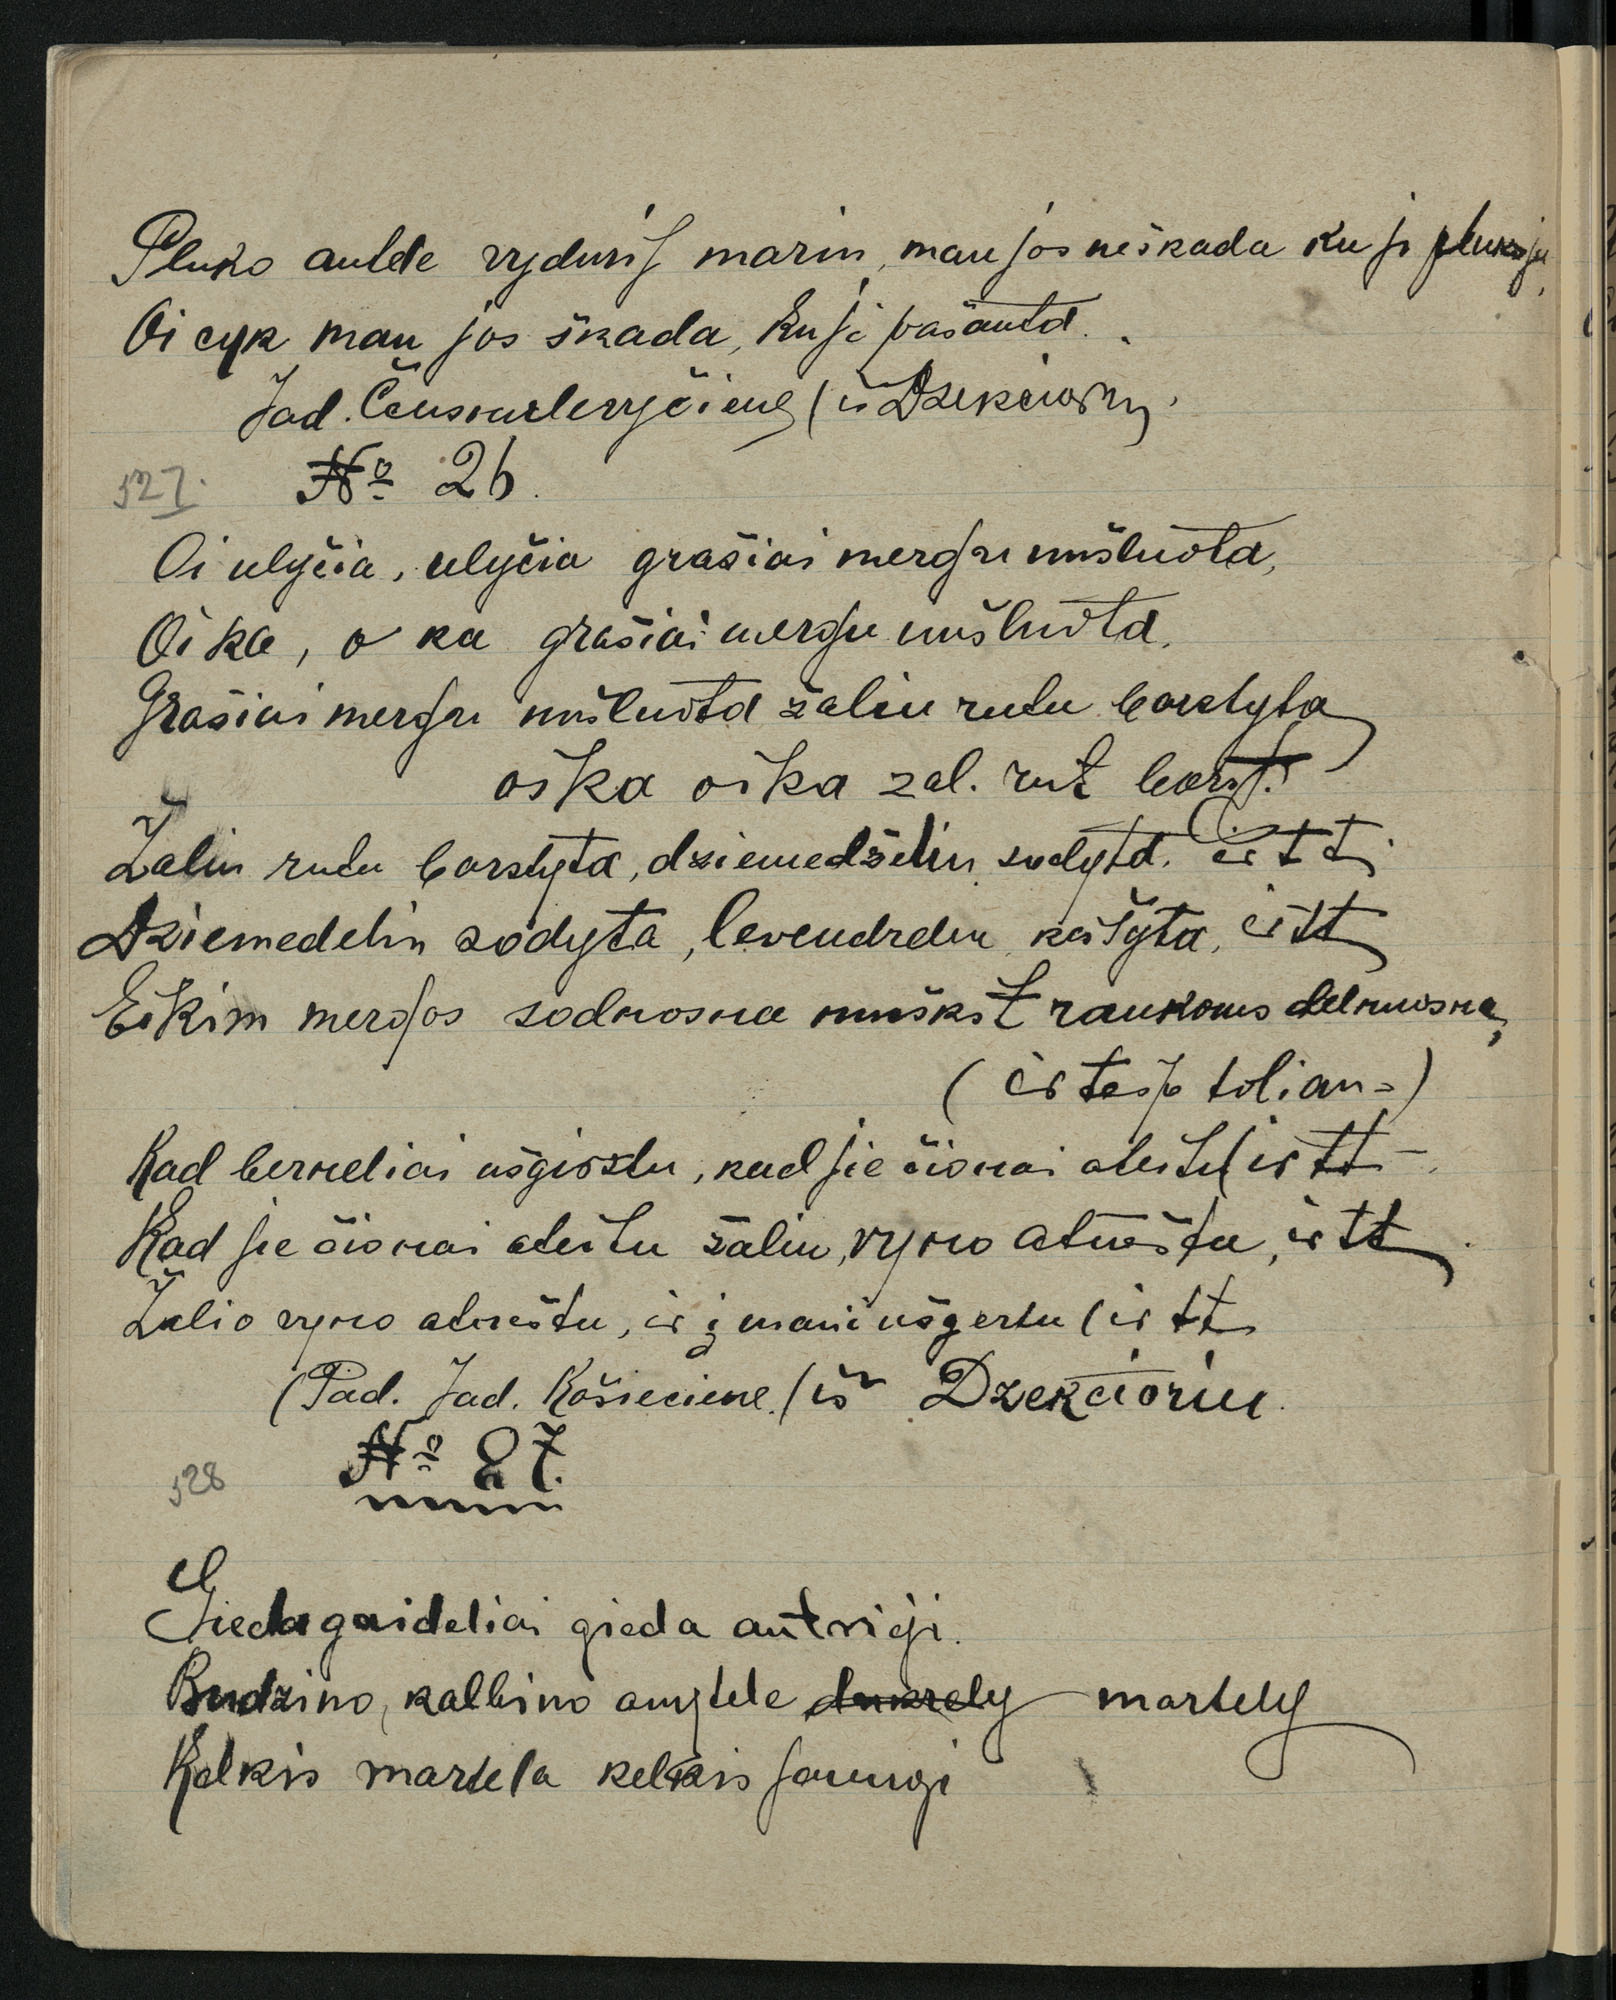 Pluko antele vydurij marių, man jos neškada ku ji plukoju,
Oi cyk man jos škada, ku ji pašauta.
Jad. (iš Dzekčiorių
527. № 26.
Oi ulyčia, ulyčia grašiai mergu nušluota,
Oi ka, o ka grašiai mergu nušluota.
Grašiai mergu nušluota žaliu rutu barstyta
oi ka oi ka žal. rut barst.
Žaliu rutu barstyta, dziemedželiu sodyta. ir t t
Dziemedeliu sodyta, levendreliu kaišyta, ir tt
Eikim mergos sodnosna nuskįt rankoms delnuosna,
(ir teip tolian=)
Kad berneliai ušgirstu, kad jie čionai ateitu (ir tt –
Kad jie čionai ateitu žaliu vyno atneštu, ir tt
Žalio vyno atneštu, ir į mani ušgertu (ir tt
(Pad. Jad. Košieciene (iš Dzekčioriu
528 № 27.
Gieda gaideliai gieda antrieji.
Budzino, kalbino anytele dukrely martely
Kelkis martela kelkis jaunoji